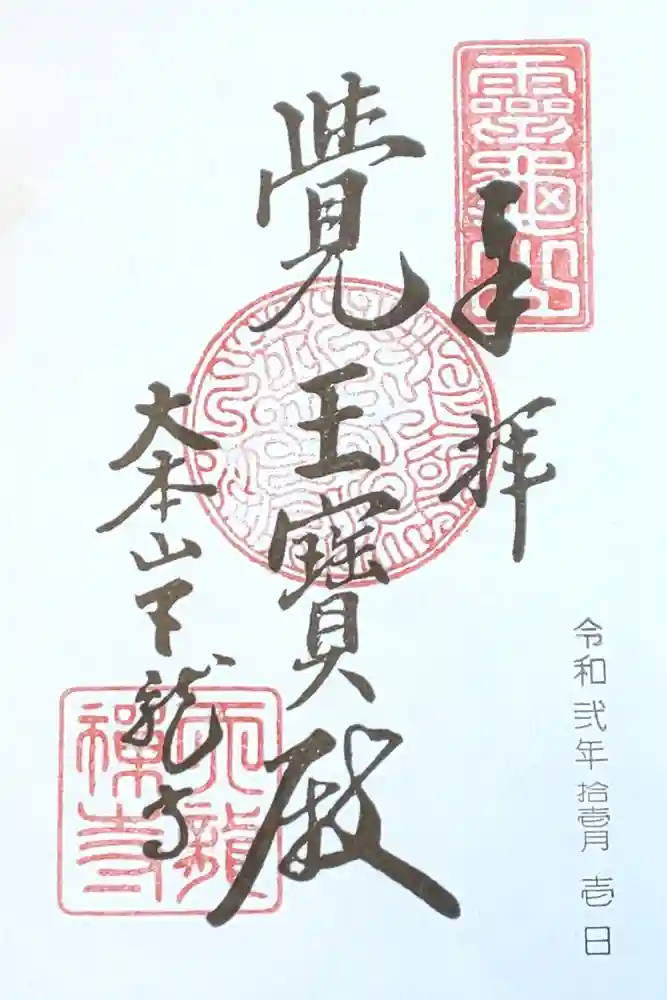 奉拝
靈龜山
令和弐年拾壱月壱日
覺王寶殿
大本山天龍寺
天龍禅寺